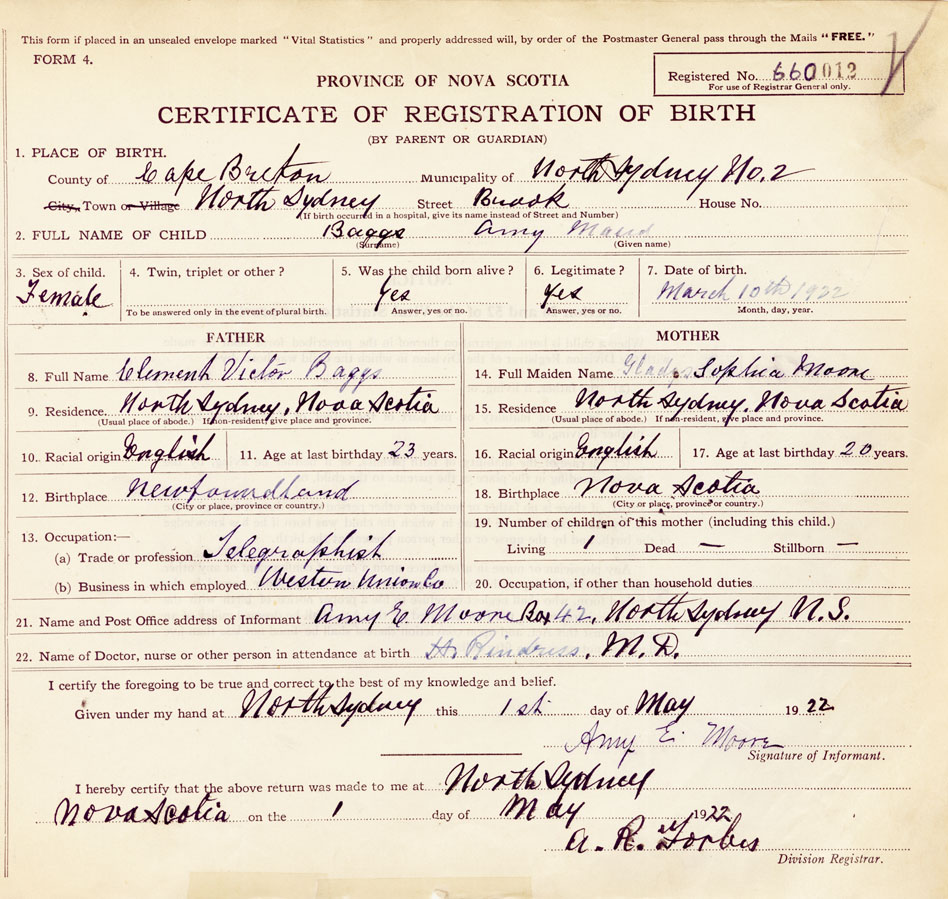 This form if placed in an unsealed envelope marked "Vital Statistics" and properly addressed will, by order of the Postmaster General pass through the Mails "FREE."
FORM 4.
Registered No. 660012
For use of Registrar General only.
PROVINCE OF NOVA SCOTIA
CERTIFICATE OF REGISTRATION OF BIRTH
(BY PARENT OR GUARDIAN)
1. PLACE OF BIRTH.
County of Cape Breton Municipality of North Sydney No. 2
City, Town or Village North Sydney Street Brook House No.
(If birth occurred in a hospital, give its name instead of Street and Number)
2. FULL NAME OF CHILD Baggs Amy Maud
(Surname) (Given name)
3. Sex of child. 4. Twin, triplet or other? 5. Was the child born alive? 6. Legitimate? 7. Date of birth.
Female Yes Yes March 10th 1922
To be answered only in the event of plural birth. Answer, yes or no. Answer, yes or no. Month, day, year.
FATHER MOTHER
8. Full Name Clement Victor Baggs 14. Full Maiden Name Gladys Sophia Moore
9. Residence. North Sydney, Nova Scotia 15. Residence North Sydney, Nova Scotia
(Usual place of abode.) If non-resident, give place and province. (Usual place of abode.) If non-resident, give place and province.
10. Racial origin English 11. Age at last birthday 23 years. 16. Racial origin English 17. Age at last birthday 20 years.
12. Birthplace Newfoundland 18. Birthplace Nova Scotia
(City or place, province or country.) (City or place, province or country.)
13. Occupation:— 19. Number of children of this mother (including this child.)
(a) Trade or profession Telegraphist Living 1 Dead — Stillborn —
(b) Business in which employed Western Union Co 20. Occupation, if other than household duties
21. Name and Post Office address of Informant Amy E. Moore Box 42, North Sydney N.S.
22. Name of Doctor, nurse or other person in attendance at birth H. Rindress, M.D.
I certify the foregoing to be true and correct to the best of my knowledge and belief.
Given under my hand at North Sydney this 1st day of May 1922
Amy E. Moore
Signature of Informant.
I hereby certify that the above return was made to me at North Sydney
Nova Scotia on the 1 day of May 1922
A. R. Forbes
Division Registrar.